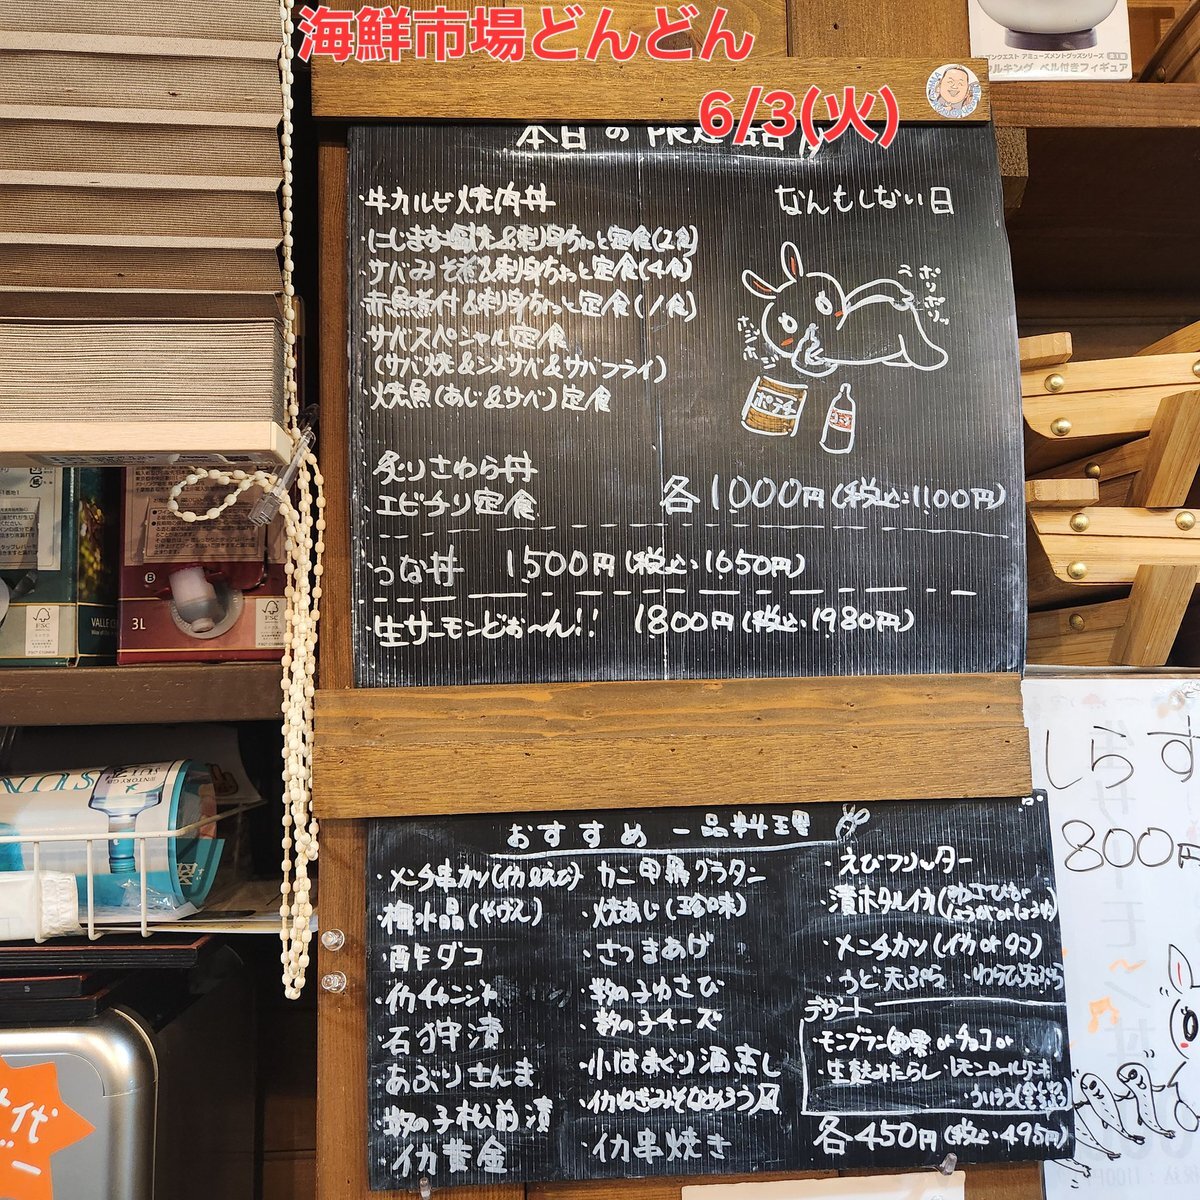 海鮮市場どんどん
6/3(火)
本日の
・牛カルビ焼肉丼
・にじます塩焼き&刺身ちょっと定食(2食)
・サバみそ煮&刺身ちょっと定食(4食)
・赤魚煮付&刺身ちょっと定食(1食)
・サバスペシャル定食
(サバ焼&シメサバ&サバフライ)
・焼魚(あじ&サバ)定食
・炙りさわら丼
・エビチリ定食
各1000円(税込・1100円)
・うな丼 1500円(税込・1650円)
・生サーモンどぉ〜ん!! 1800円(税込・1980円)
なんもしない日
ポリポリッ
ホジホジ
ポテチ
コーラ
おすすめ一品料理
・メンチ串カツ(イカ&えび)
・梅水晶(やげん)
・酢ダコ
・イカチャンジャ
・石狩漬
・あぶりさんま
・数の子松前漬
・イカ黄金
・カニ甲羅グラタン
・焼あじ(珍味)
・さつまあげ
・数の子わさび
・数の子チーズ
・小はまぐり酒蒸し
・イカねぎみそなめろう
・イカ串焼き
・えびフリッター
・漬ホタルイカ
・メンチカツ(イカorタコ)
・うど天ぷら ・わらび天ぷら
デザート
・モンブラン orチョコor
・生麩みたらし ・レモンロールケーキ
・ういろう
各450円(税込・495円)
しらす
800円
ベル付きフィギュア
3L
FSC